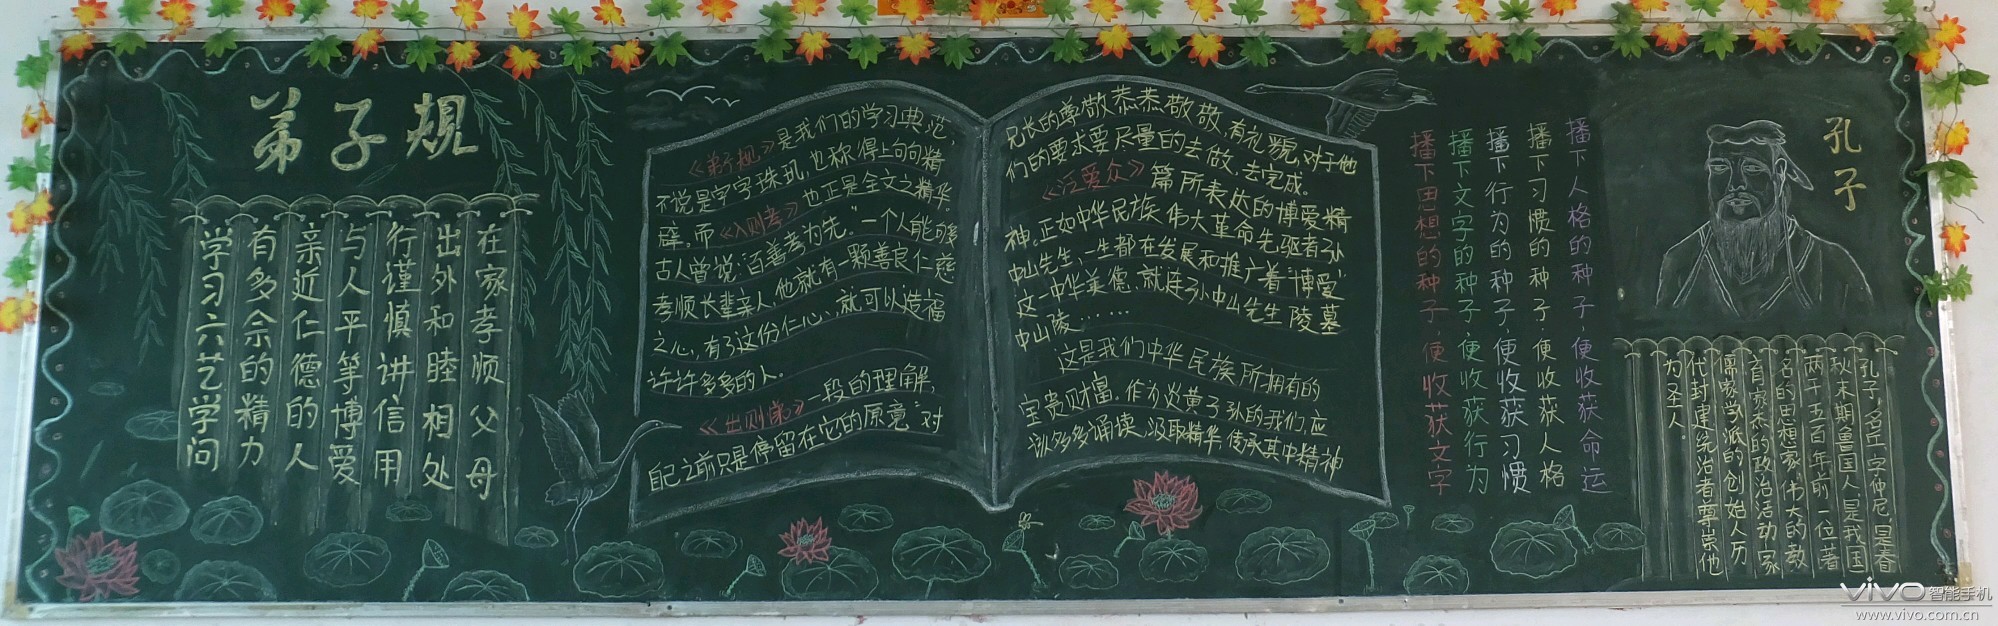 弟子规
在家孝顺父母
出外和睦相处
行谨慎讲信用
与人平等博爱
亲近仁德的人
有多余的精力
学习六艺学问
《弟子规》是我们的学习典范,
不说是字字珠玑,也称得上句句精
辟。而《入则孝》也正是全文之精华。
古人曾说“百善孝为先。”一个人能够
孝顺长辈亲人,他就有一颗善良仁慈
之心,有了这份仁心、就可以造福
许许多多的人。
《出则弟》一段的理解,
自己之前只是停留在它的原意“对
兄长的尊敬恭恭敬敬,有礼貌,对于他
们的要求要尽量的去做,去完成。
《泛爱众》篇所表达的博爱精
神。正如中华民族伟大革命先驱者孙
中山先生,一生都在发展和推广着“博爱”
这一中华美德,就连孙中山先生陵墓
中山陵……
这是我们中华民族所拥有的
宝贵财富。作为炎黄子孙的我们,应
该多多诵读,汲取精华,传承其中精神
播下人格的种子,便收获命运
播下习惯的种子,便收获人格
播下行为的种子,便收获习惯
播下文字的种子,便收获行为
播下思想的种子,便收获文字
孔子
孔子,名丘,字仲尼,是春
秋末期鲁国人,是我国
两千五百年前一位著
名的思想家、伟大的教
育家杰的政治活动家
儒家学派的创始人历
代封建统治者尊崇他
为圣人。
vivo智能手机
www.vivo.com.cn